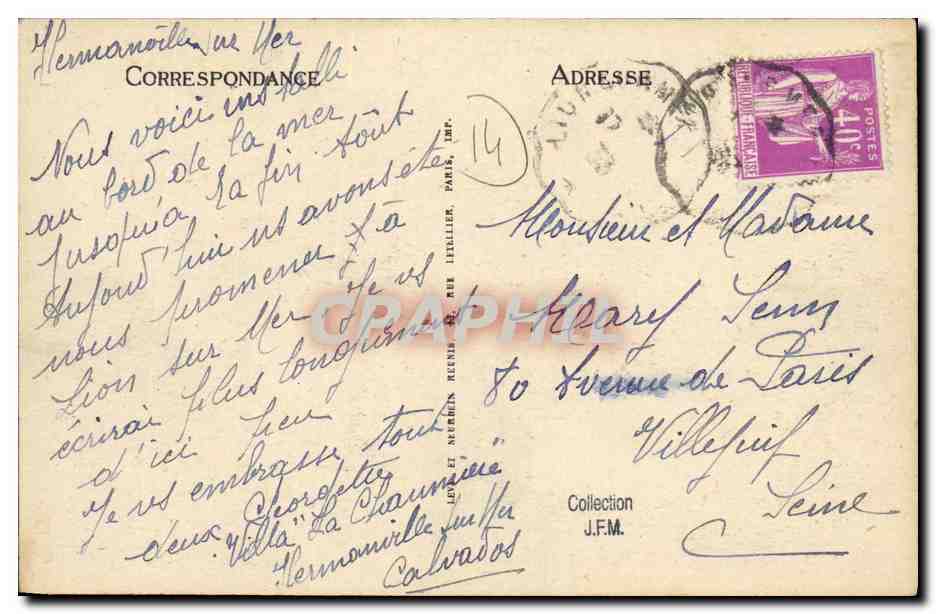 Hermanville sur Mer
CORRESPONDANCE
Nous voici installé
au bord de la mer
jusqu'à la fin août
Aujourd'hui ns avons été
nous promener à
Lion sur Mer. Je vs
écrirai plus longuement
d'ici peu
Je vs embrasse tout
deux Georgette
Villa "La Chaumière"
Hermanville sur Mer
Calvados
LEVY ET NEURDEIN REUNIS RUE LETELLIER, PARIS, IMP.
14
ADRESSE
POSTES
40c
REPUBLIQUE FRANÇAISE
Monsieur et Madame
Mary
80 Avenue de Paris
Villejuif
Seine
Collection
J.F.M.
CPAPHIL